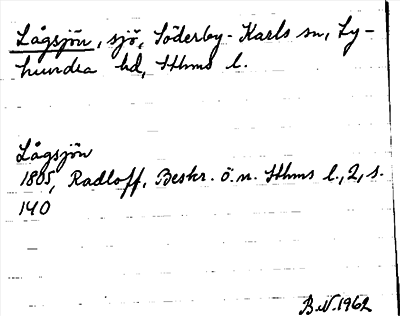 Lågsjön, sjö, Söderby-Karls sn, Ly-
hundra hd, Sthms l.
Lågsjön
1805, Radloff, Beskr. ö. n. Sthms l., 2, s.
140
B.N. 1962